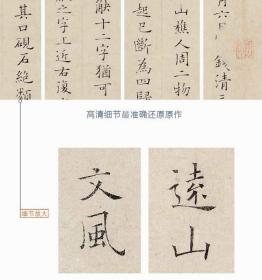 月六日 錢清
山樵人周二物
起已斷為四
缺十二字猶可
之字上近右復
其口硯石絶類
高清细节最准确还原原作
细节放大
遠山
文風